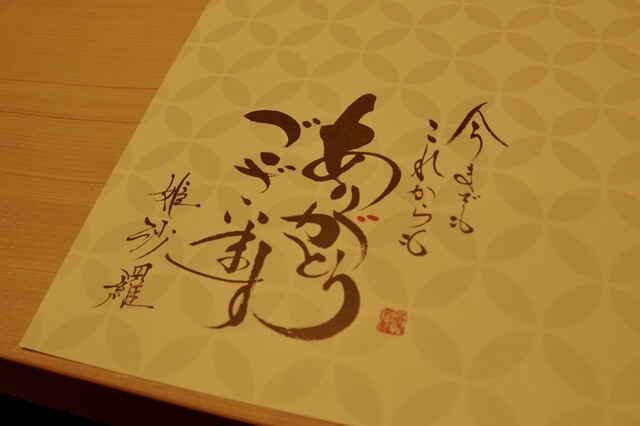 今までも
これからも
ありがとう
ございます
姫沙羅